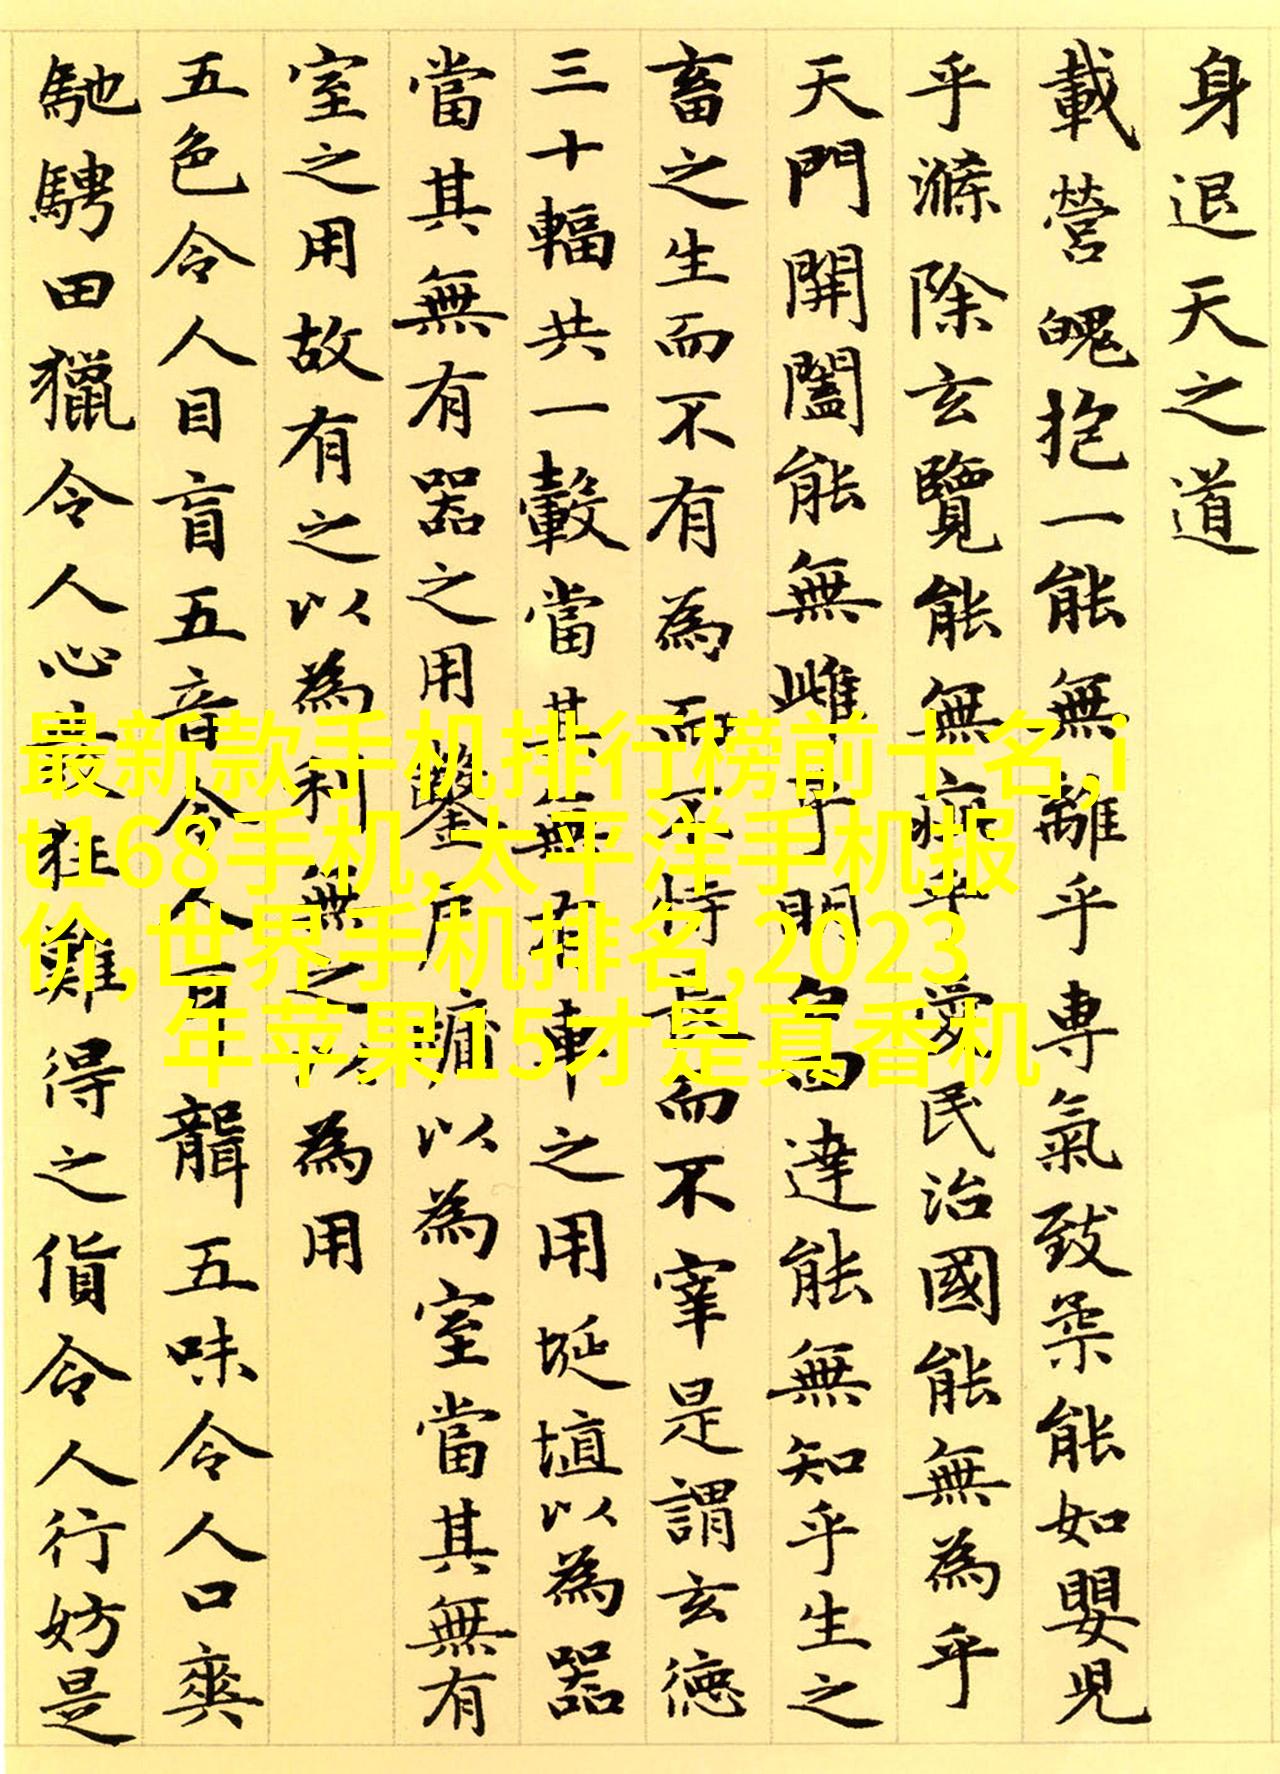 身退天之道
載營魄抱一能無離乎專氣致柔能如嬰児
乎滌除玄覽能無疵乎愛民治國能無為乎
天門開闔能無雌乎明白四達能無知乎生之
畜之生而不有為而不恃長而不宰是謂玄德
三十輻共一轂當其無有車之用埏埴以為器
當其無有器之用鑿戶牖以為室當其無有
室之用故有之以為利無之以為用
五色令人目盲五音令人耳聾五味令人口爽
馳騁田獵令人心發狂難得之貨令人行妨是
最新款手机排行榜前十名,i
t168手机,太平洋手机报
价,世界手机排名,2023
年苹果15才是真香机